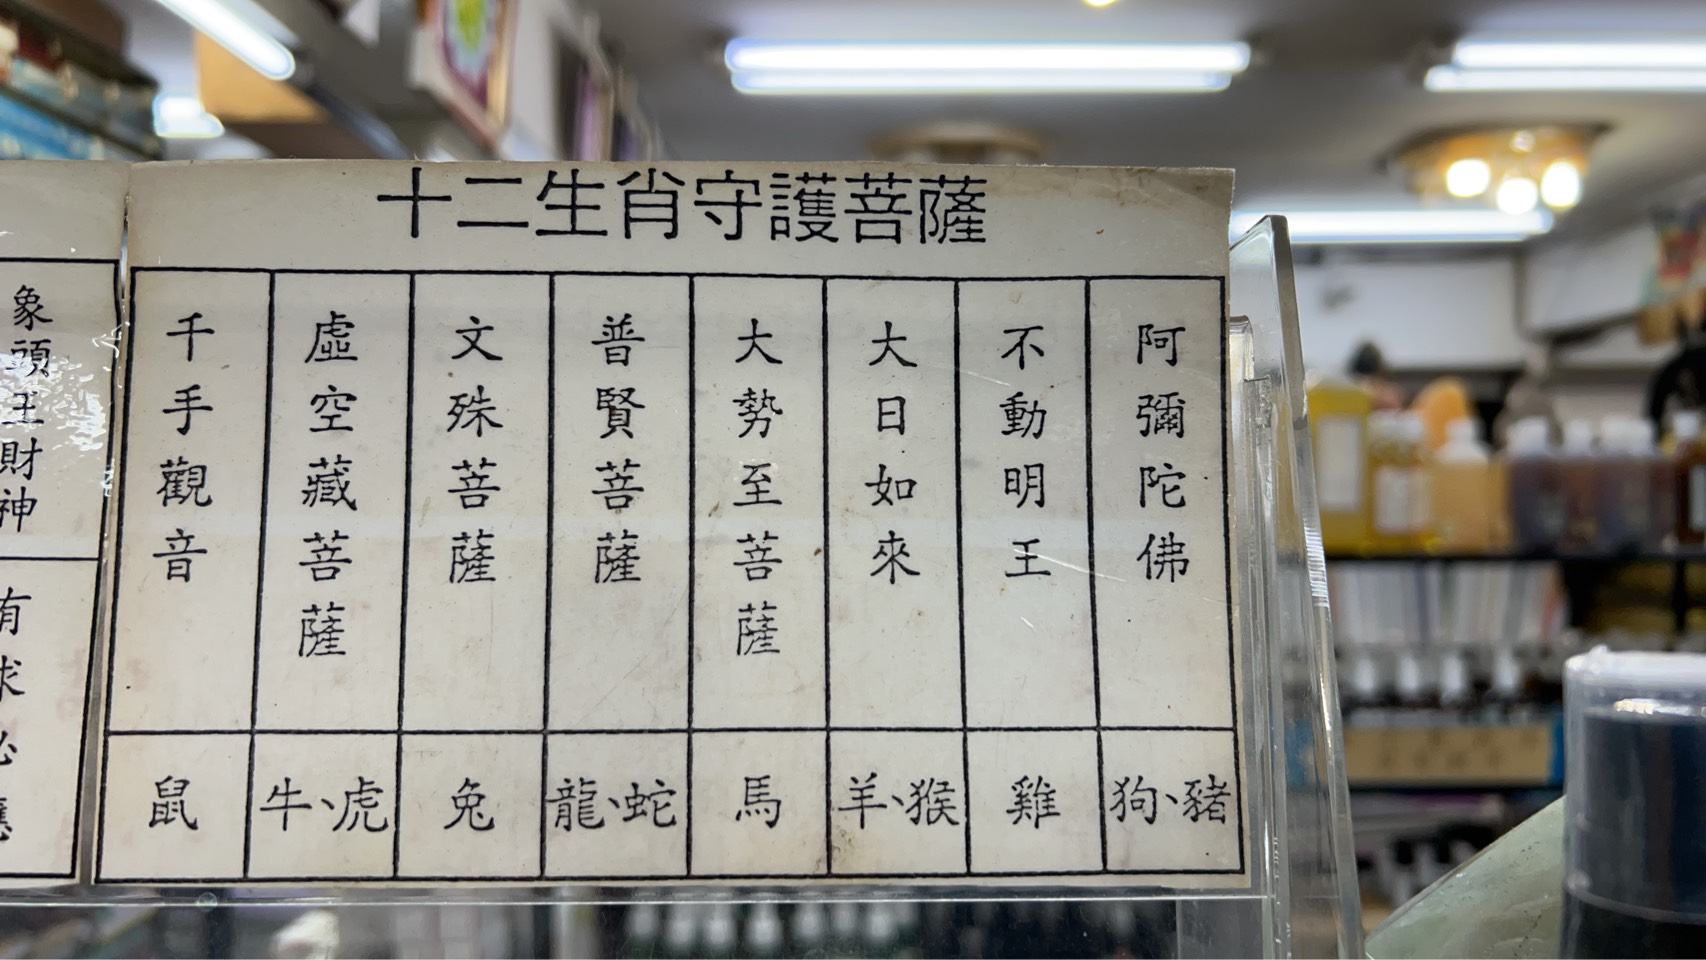 十二生肖守護菩薩
千手觀音
鼠
虛空藏菩薩
牛、虎
文殊菩薩
兔
普賢菩薩
龍、蛇
大勢至菩薩
馬
大日如來
羊、猴
不動明王
雞
阿彌陀佛
狗、豬
象頭王財神
有求必應